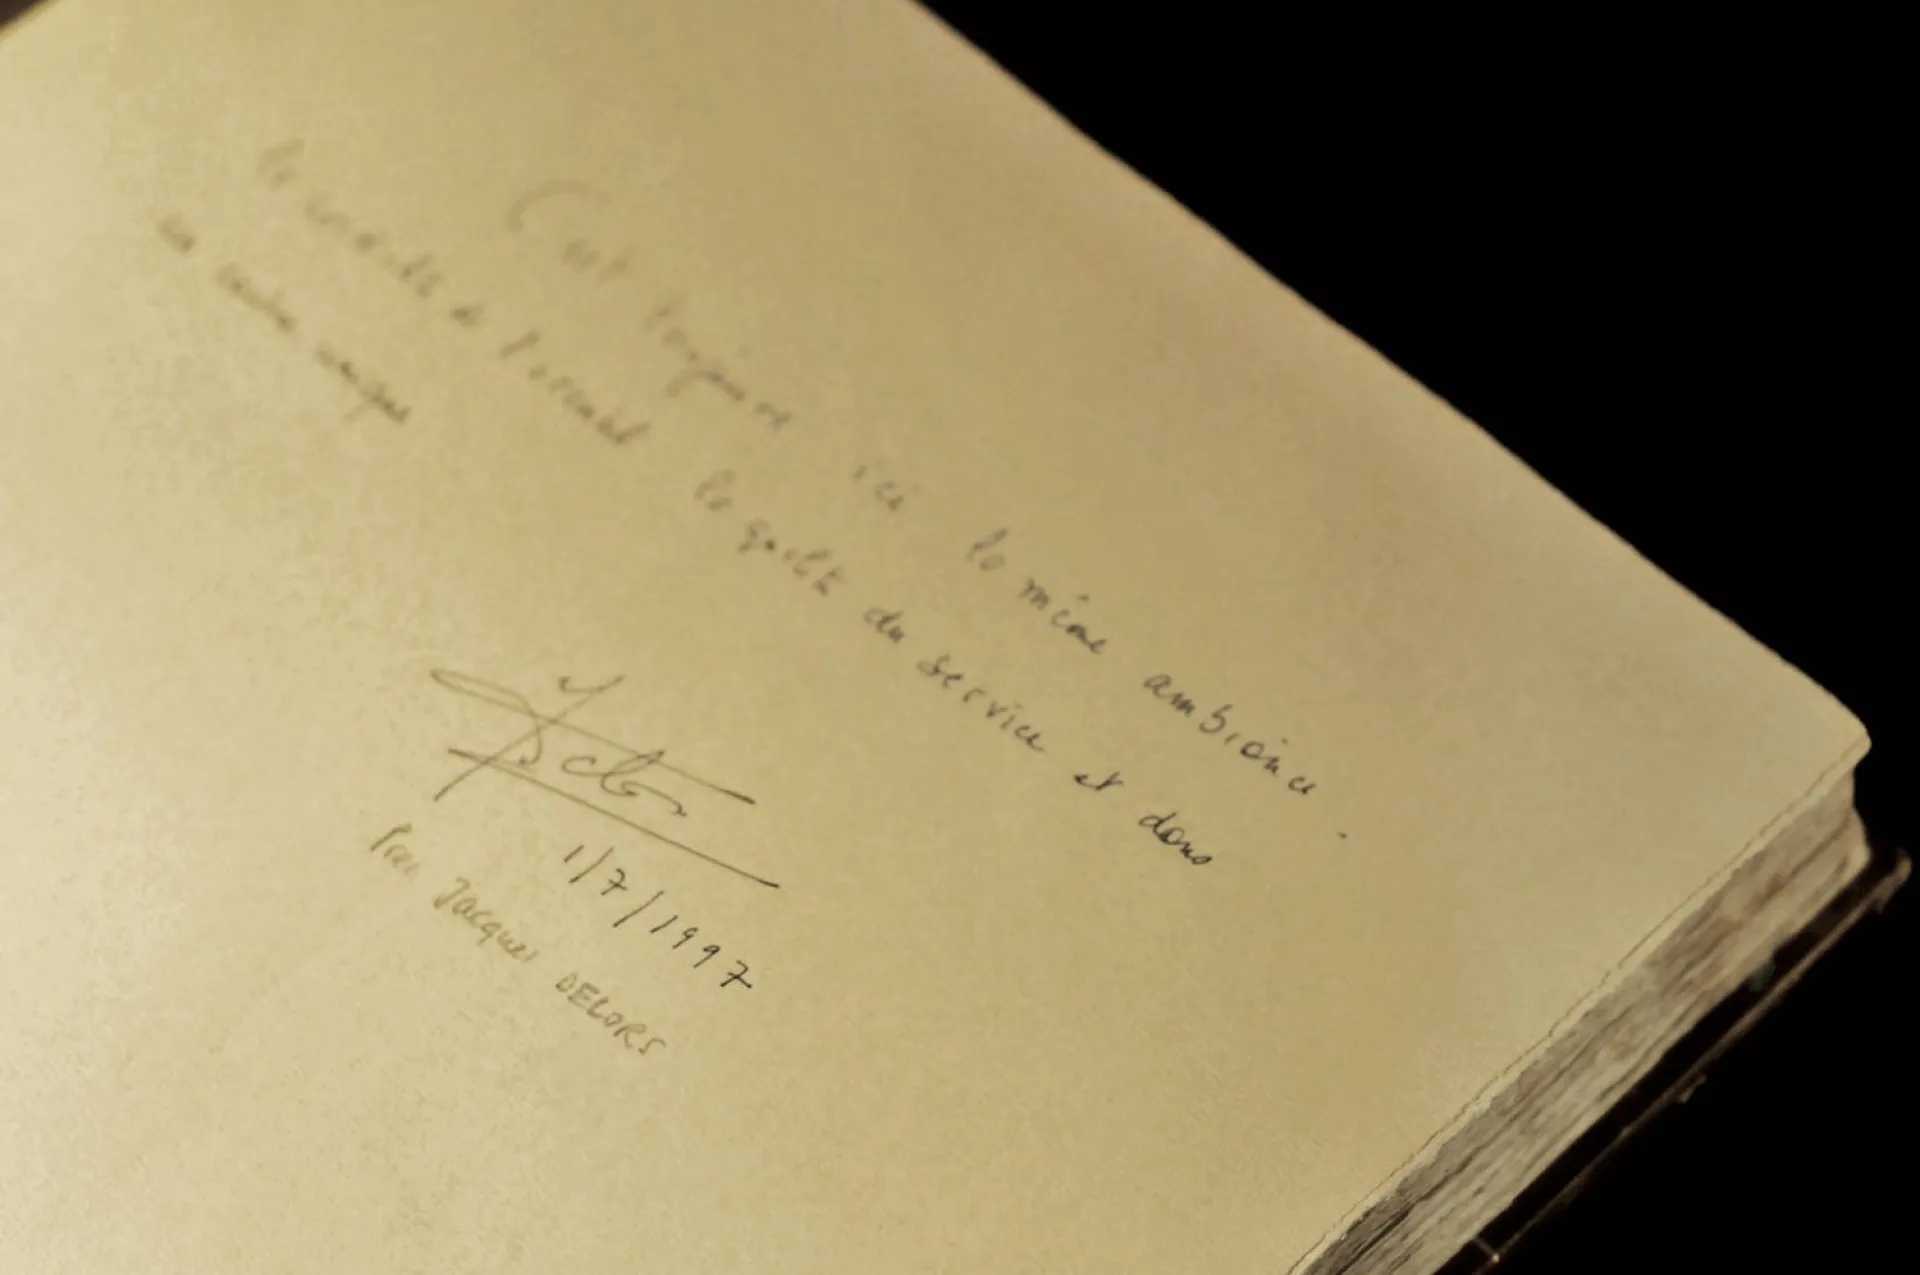 C'est toujours ici la même ambiance.
la de l'accueil la qualité du service et dans
un unique
1/7/1997
Jacques DELORS